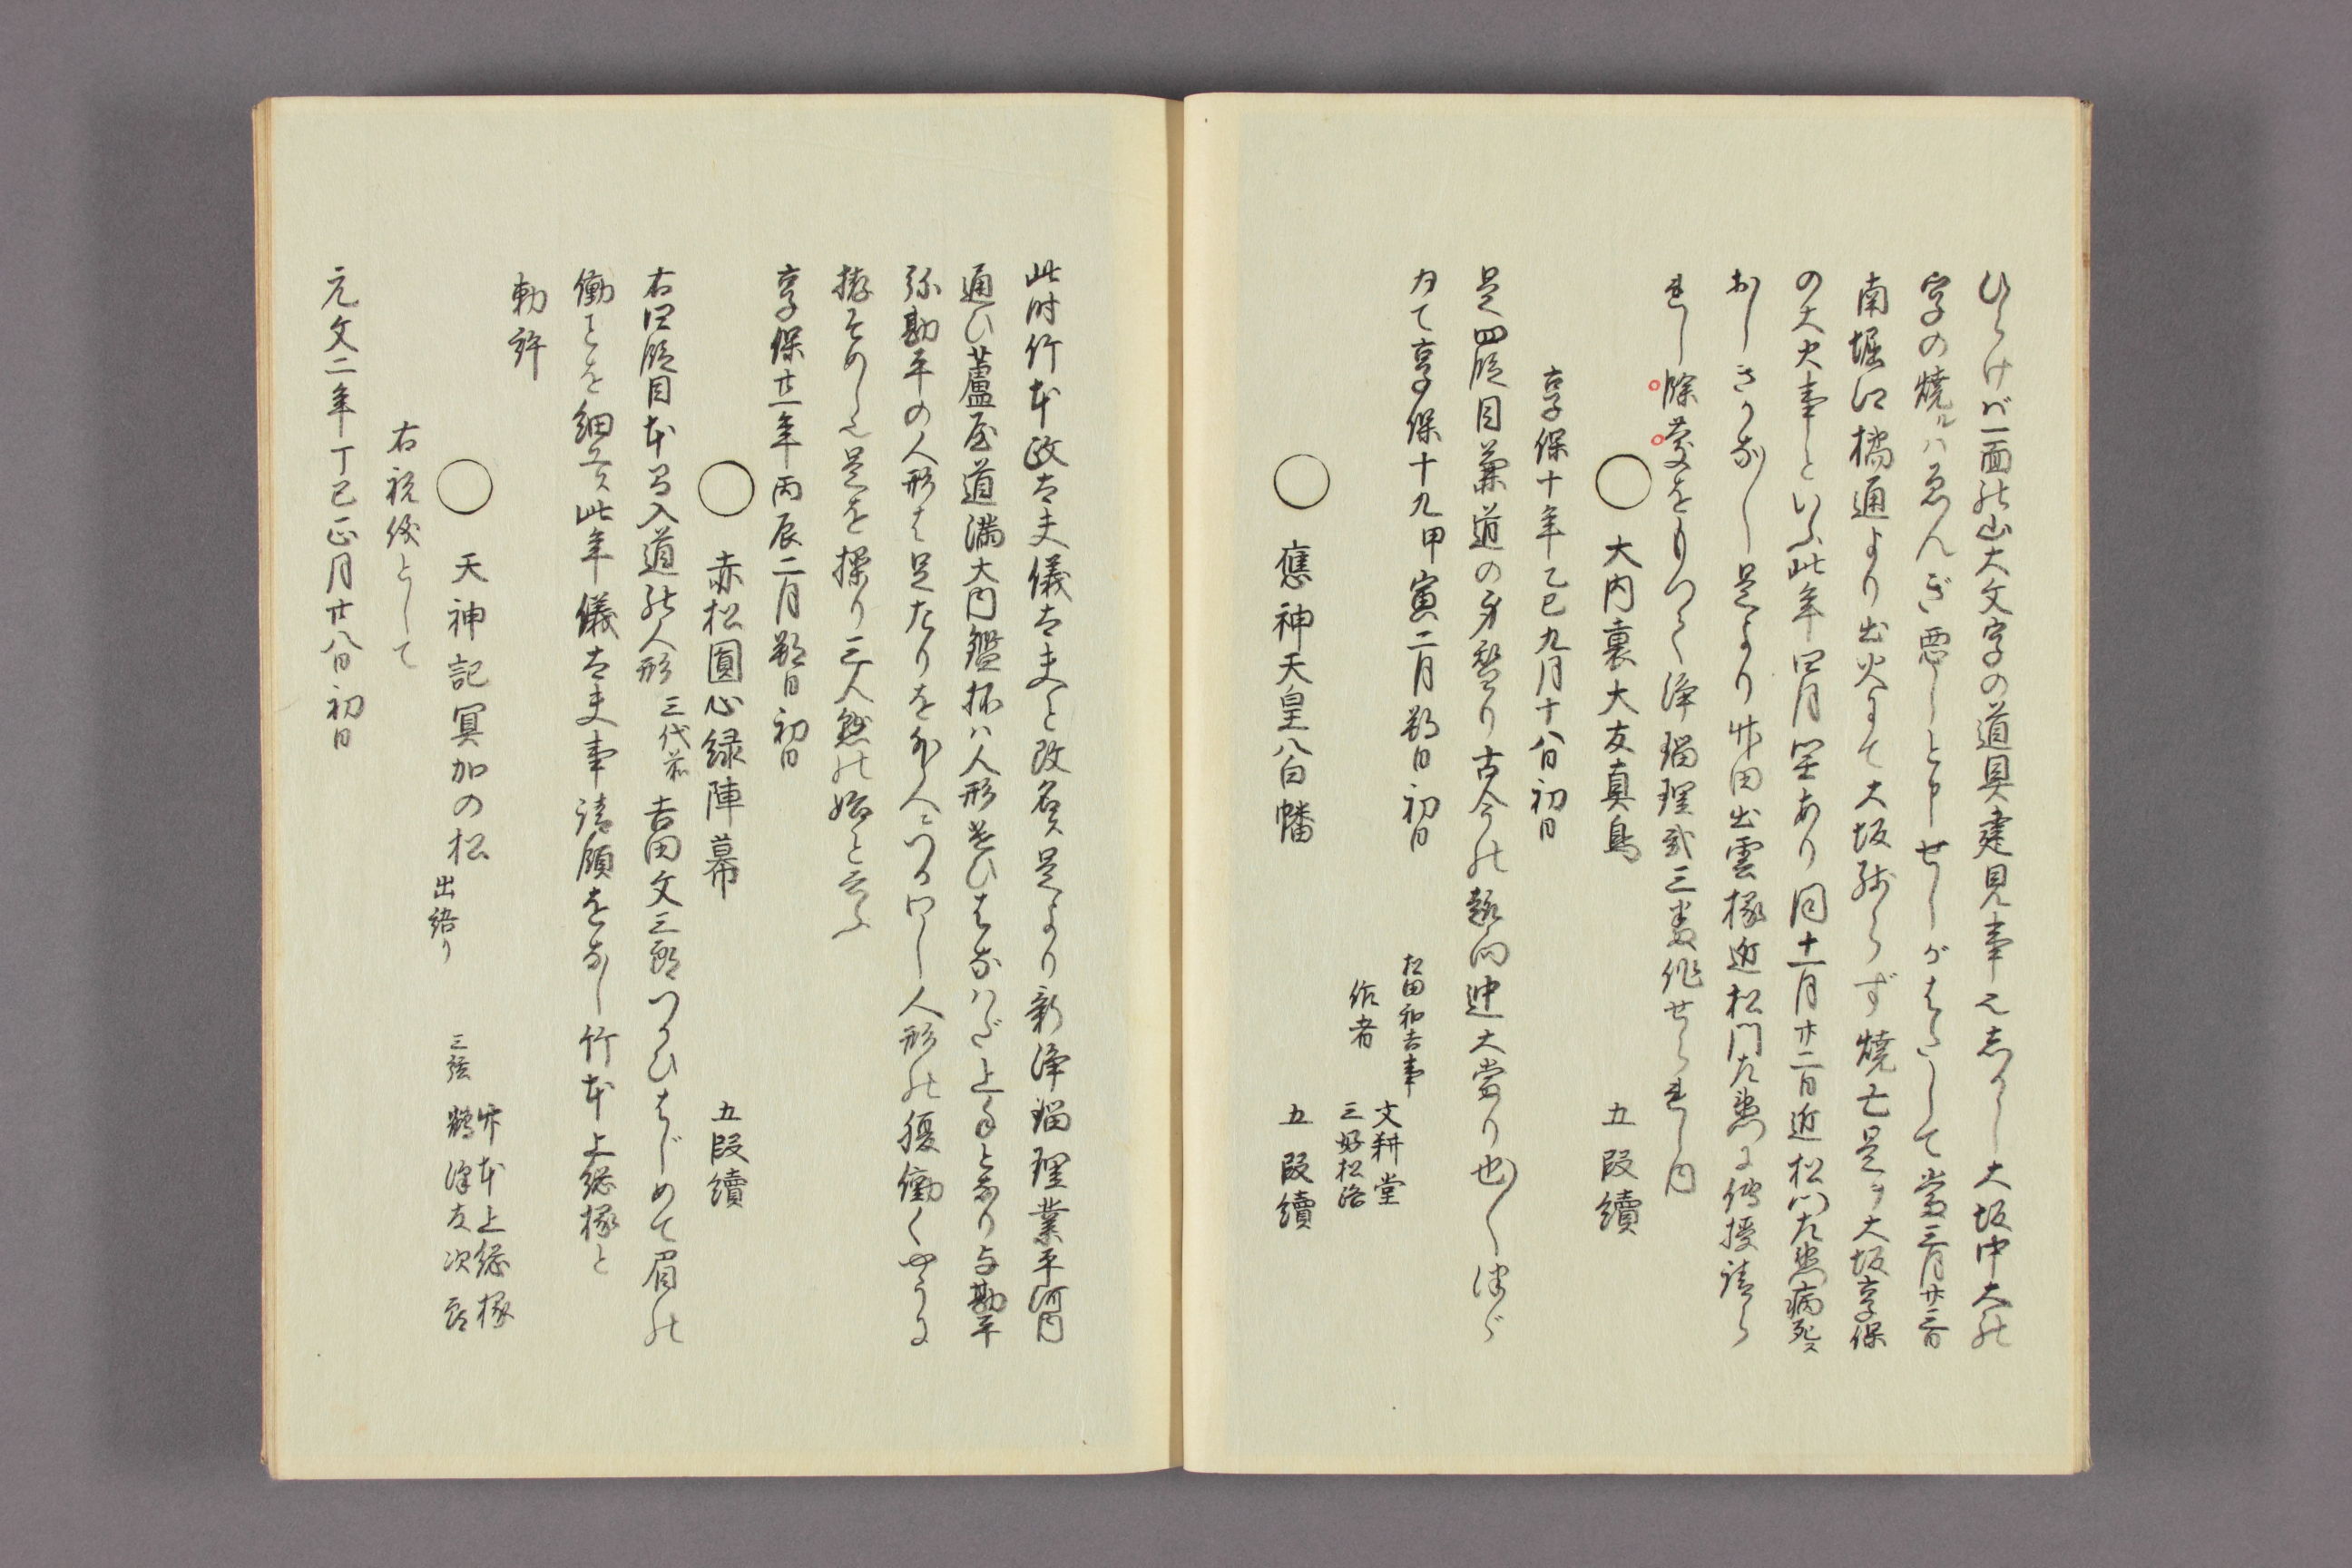 ひらけば一面の山大文字の道具建見事也しかし大坂中大の
字の焼ルハゑんぎ悪しと申せしがはたして當三月廿一日
南堀江橘通より出火にて大坂残らず焼亡是ヲ大坂享保
の大火事といふ此年四月閏あり同十一月廿二日近松門左衛門病死ス
おしきかなし是より竹田出雲掾近松門左衛門に傳授請ら
れし際
をもつて浄瑠理弐三番作せられし内
○ 大内裏大友真鳥 五段續
享保十年乙巳九月十八日初日
是四段目兼道の身替り古今の趣向迚大當り也
つゞ
て享保十九甲寅二月朔日初日
松田和吉事 文耕堂
作者 三好松洛
○ 應神天皇八白幡 五段續
此時竹本政太夫儀太夫と改名是より新浄瑠理業平河内
通ひ蘆屋道満大内鑑抔ハ人形遣ひはなハだ上手と成り与勘平
弥勘平の人形は足左りを外人につかハし人形の腹働くやうに
拵そめし也是を操り三人懸の始と云ふ
享保廿一年丙辰二月朔日初日
○ 赤松圓心緑陣幕 五段續
右四段目本間入道の人形 三代前 吉田文三郎つかひはじめて眉の
働
とを細工ス此年儀太夫事請願をなし竹本上総掾と
勅許
○ 天神記冥加の松 出語り 竹本上総掾
三弦 鶴澤友次郎
右祝儀として
元文二年丁巳正月廿八日初日